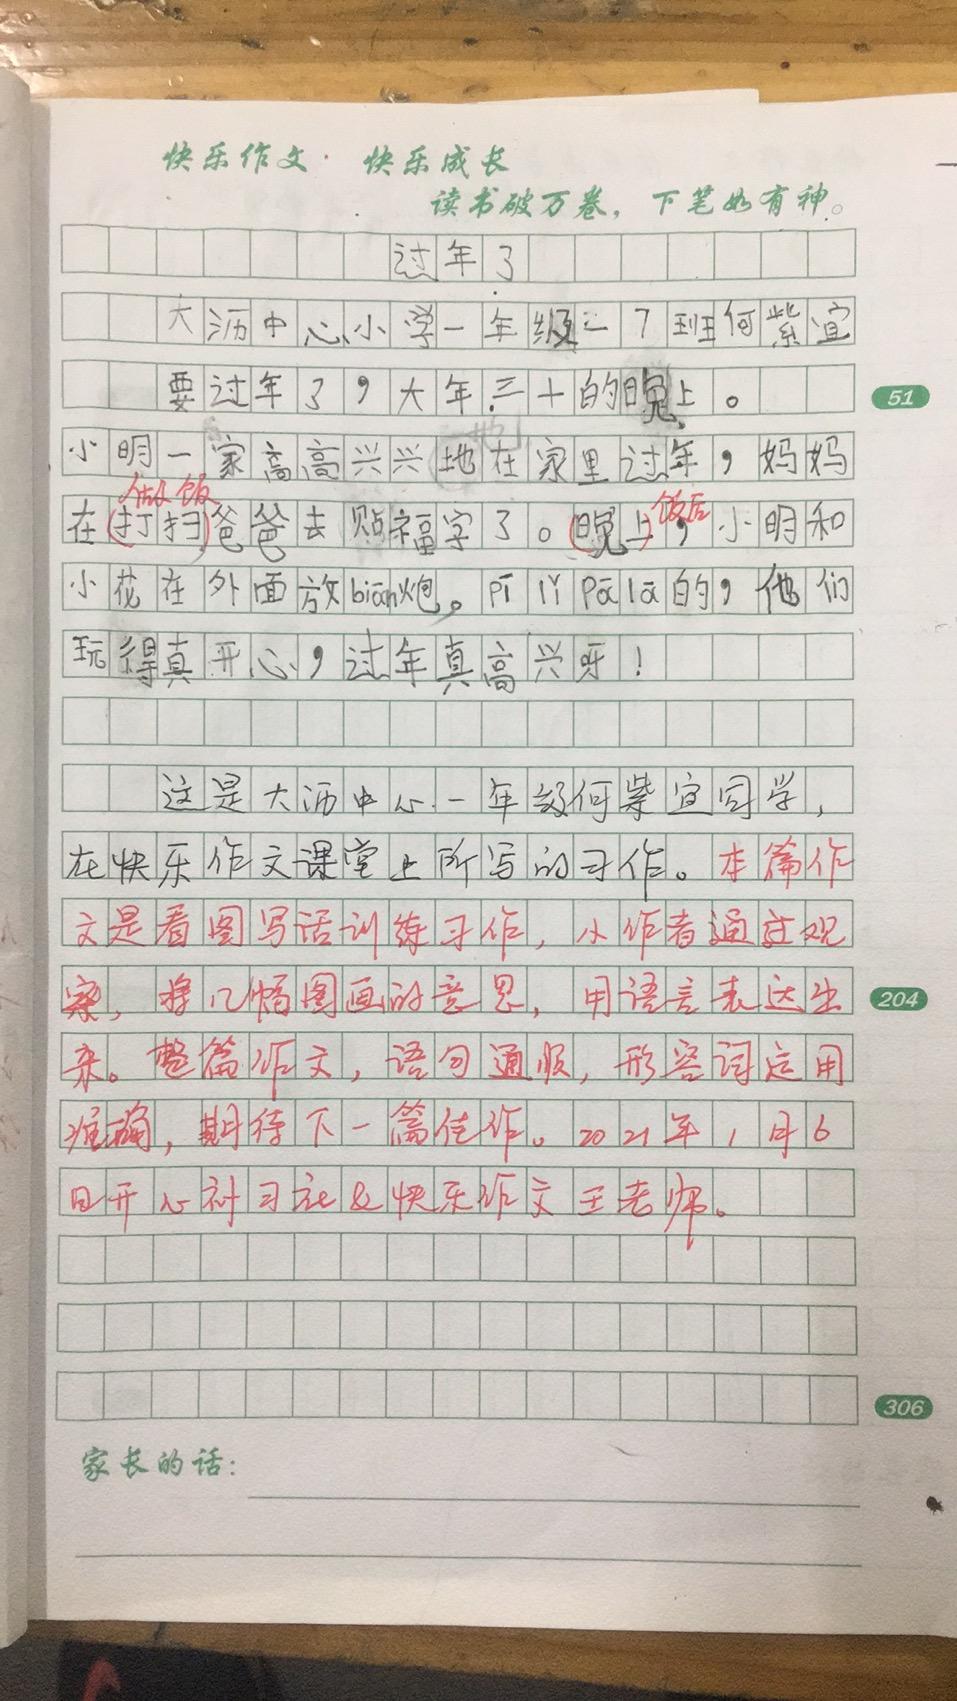 快乐作文·快乐成长
读书破万卷，下笔如有神。
过年了
大沥中心小学一年级二7班何紫宜
要过年了，大年三十的晚上。
51
小明一家高高兴兴地在家里过年，妈妈
做饭
饭后
在(打扫)爸爸去贴福字了。(晚上)，小明和
小花在外面放biān炮。pī lǐ pā lā的，他们
玩得真开心，过年真高兴呀！
这是大沥中心一年级何紫宜同学，
在快乐作文课堂上所写的习作。本篇作
文是看图写话训练习作，小作者通过观
察，将几幅图画的意思，用语言表达出
204
来。整篇作文，语句通顺，形容词运用
准确，期待下一篇佳作。2021年1月6
日开心补习社&快乐作文王老师。
306
家长的话：